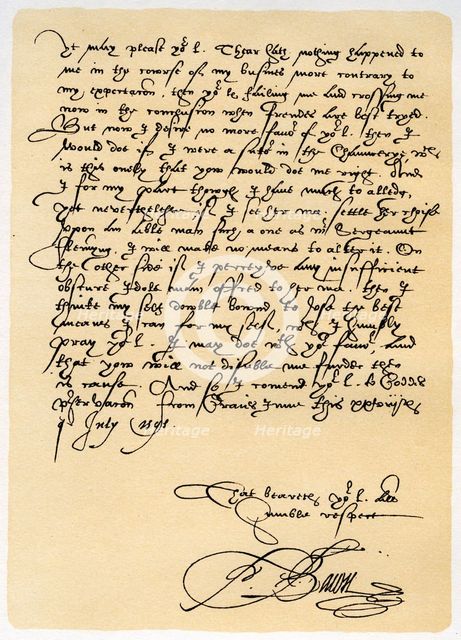 It may please yor l. Thear hath nothing happened to
me in the cowrse of my busines more contrary to
my expectacon, then yor ls failing me and crossing me
now in the conclusion when frendes are best tryed.
But now I desire no more favor of yor l. then I
would doe if I were a sutor in the Chauncerye, wch
is this onely that yow would doe me right. And
I for my part though I have much to alledg,
yet nevertheless if I see her ma. settle her choise
upon an able man such a one as mr Sergeaunt
Fleming, I will make no means to alter it. On
the other side if I perceyve any insufficient
obscure Idole man offred to her ma. then I
thinke my self dowble bound to use the best
meanes I can for my self, wch I humbly
pray yor l. I may doe wth yor favor, and
that yow will not disable me furder then
is cause. And so I comend yor l. to Goddes
preservacon. From Graies Inne this
July 1595
That beareth yor l. all
humble respect
Fr. Bacon
Heritage
Heritage
Heritage
Heritage